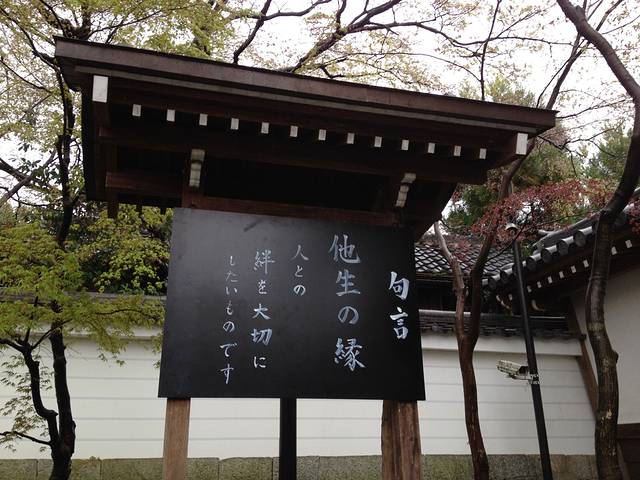 句言
他生の縁
人との
絆を大切に
したいものです